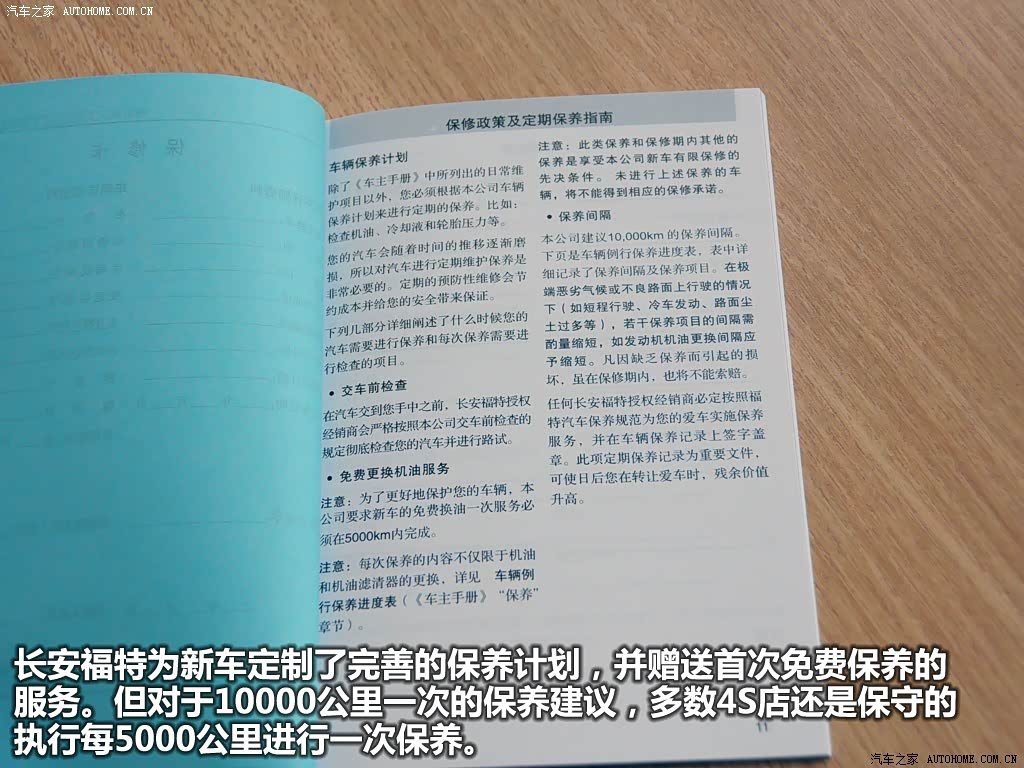 汽车之家 AUTOHOME.COM.CN
汽车之家 AUTOHOME.COM.CN
保修卡
保修政策及定期保养指南
车辆保养计划
除了《车主手册》中所列出的日常维
护项目以外，您必须根据本公司车辆
保养计划来进行定期的保养。比如：
检查机油、冷却液和轮胎压力等。
您的汽车会随着时间的推移逐渐磨
损，所以对汽车进行定期维护保养是
非常必要的。定期的预防性维修会节
约成本并给您的安全带来保证。
下列几部分详细阐述了什么时候您的
汽车需要进行保养和每次保养需要进
行检查的项目。
• 交车前检查
在汽车交到您手中之前，长安福特授权
经销商会严格按照本公司交车前检查的
规定彻底检查您的汽车并进行路试。
• 免费更换机油服务
注意：为了更好地保护您的车辆，本
公司要求新车的免费换油一次服务必
须在5000km内完成。
注意：每次保养的内容不仅限于机油
和机油滤清器的更换，详见 车辆例
行保养进度表（《车主手册》“保养”
章节）。
注意：此类保养和保修期内其他的
保养是享受本公司新车有限保修的
先决条件。 未进行上述保养的车
辆，将不能得到相应的保修承诺。
• 保养间隔
本公司建议10,000km 的保养间隔。
下页是车辆例行保养进度表，表中详
细记录了保养间隔及保养项目。在极
端恶劣气候或不良路面上行驶的情况
下（如短程行驶、冷车发动、路面尘
土过多等），若干保养项目的间隔需
酌量缩短，如发动机机油更换间隔应
予缩短。凡因缺乏保养而引起的损
坏，虽在保修期内，也将不能索赔。
任何长安福特授权经销商必定按照福
特汽车保养规范为您的爱车实施保养
服务，并在车辆保养记录上签字盖
章。此项定期保养记录为重要文件，
可使日后您在转让爱车时，残余价值
升高。
11
长安福特为新车定制了完善的保养计划，并赠送首次免费保养的
服务。但对于10000公里一次的保养建议，多数4S店还是保守的
执行每5000公里进行一次保养。
汽车之家 AUTOHOME.COM.CN